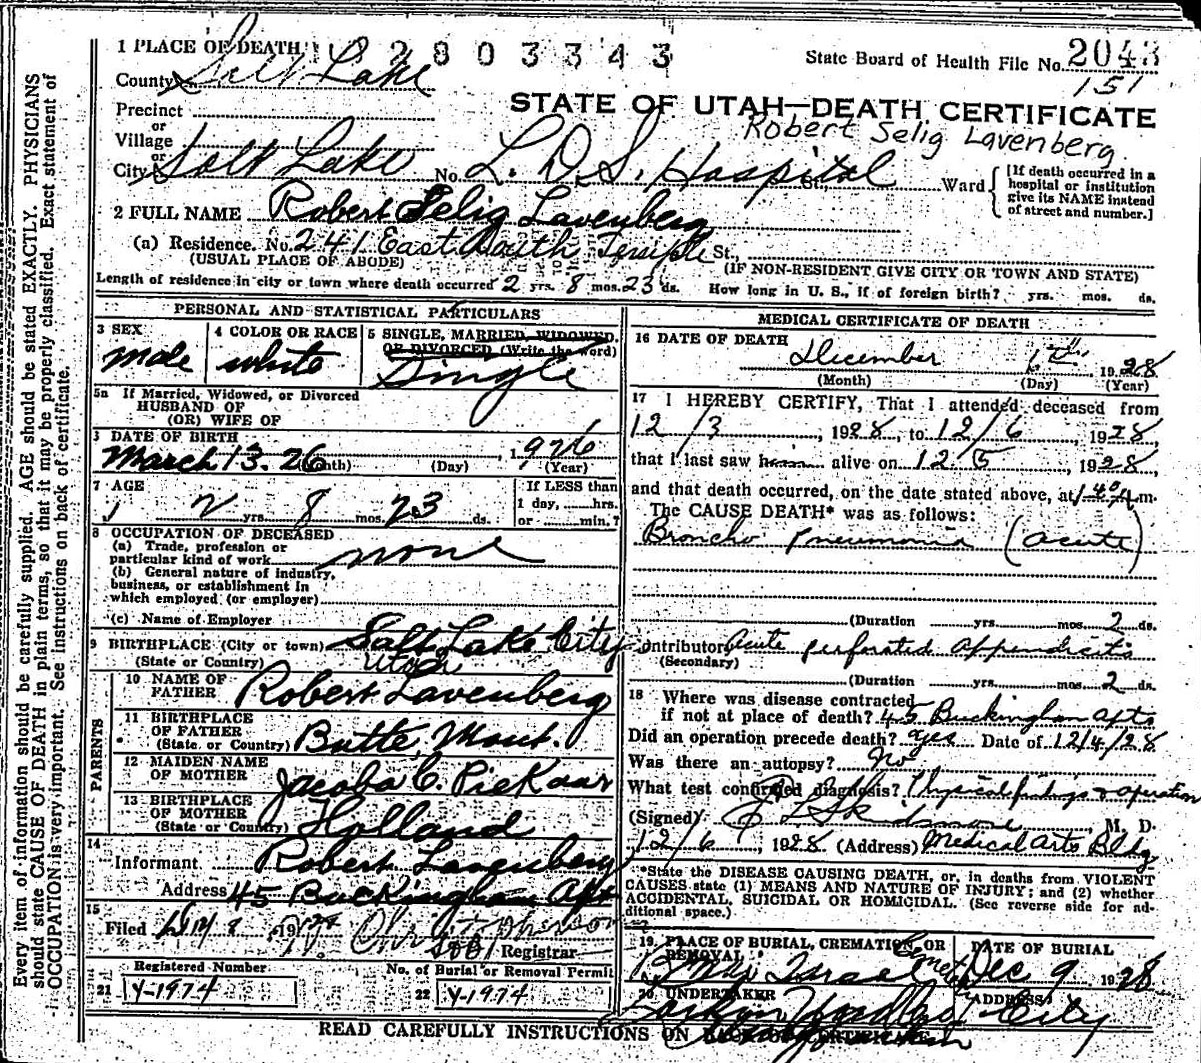 1 PLACE OF DEATH 2803343
State Board of Health File No. 2043
151
County Salt Lake
STATE OF UTAH—DEATH CERTIFICATE
Precinct
or
Village
Robert Selig Lavenberg
or
City Salt Lake No. L. D. S. Hospital St., Ward
[If death occurred in a hospital or institution give its NAME instead of street and number.]
2 FULL NAME Robert Selig Lavenberg
(a) Residence. No. 241 East South Temple St.,
(USUAL PLACE OF ABODE) (IF NON-RESIDENT GIVE CITY OR TOWN AND STATE)
Length of residence in city or town where death occurred 2 yrs. 8 mos. 23 ds. How long in U. S., if of foreign birth? yrs. mos. ds.
PERSONAL AND STATISTICAL PARTICULARS
3 SEX 4 COLOR OR RACE 5 SINGLE, MARRIED, WIDOWED,
OR DIVORCED (Write the word)
male white Single
5a If Married, Widowed, or Divorced
HUSBAND OF
(OR) WIFE OF
DATE OF BIRTH
March 13. 26 (Month) (Day) 1926 (Year)
7 AGE If LESS than
2 yrs. 8 mos. 23 ds. 1 day, hrs.
or min.?
8 OCCUPATION OF DECEASED
(a) Trade, profession or
particular kind of work none
(b) General nature of industry,
business, or establishment in
which employed (or employer)
(c) Name of Employer
9 BIRTHPLACE (City or town) Salt Lake City
(State or Country) Utah
PARENTS
10 NAME OF
FATHER Robert Lavenberg
11 BIRTHPLACE
OF FATHER
(State or Country) Butte, Mont.
12 MAIDEN NAME
OF MOTHER Jacoba C. PieKaar
13 BIRTHPLACE
OF MOTHER
(State or Country) Holland
14
Informant Robert Lavenberg
Address 45 Buckingham Apt
15
Filed 19
Registrar
Registered Number No. of Burial or Removal Permit
21 Y-1974 22 Y-1974
MEDICAL CERTIFICATE OF DEATH
16 DATE OF DEATH
December 6th 1928
(Month) (Day) (Year)
17 I HEREBY CERTIFY, That I attended deceased from
12/3, 1928, to 12/6, 1928,
that I last saw him alive on 12 5 1928,
and that death occurred, on the date stated above, at 1 40 A m.
The CAUSE DEATH* was as follows:
Broncho Pneumonia (acute)
(Duration yrs. mos. 2 ds.
Contributory Acute perforated Appendicitis
(Secondary)
(Duration yrs. mos. 2 ds.
18 Where was disease contracted
if not at place of death? 45 Buckingham Apts
Did an operation precede death? yes Date of 12/4/28
Was there an autopsy? No
What test confirmed diagnosis? Physical findings & operation
(Signed) M. D.
12/6, 1928 (Address) Medical Arts Bldg
*State the DISEASE CAUSING DEATH, or, in deaths from VIOLENT
CAUSES state (1) MEANS AND NATURE OF INJURY; and (2) whether
ACCIDENTAL, SUICIDAL OR HOMICIDAL. (See reverse side for additional space.)
19 PLACE OF BURIAL, CREMATION, OR REMOVAL DATE OF BURIAL
Israel Dec 9 1928
20 UNDERTAKER ADDRESS
City
READ CAREFULLY INSTRUCTIONS ON BACK OF CERTIFICATE
Every item of information should be carefully supplied. AGE should be stated EXACTLY. PHYSICIANS
should state CAUSE OF DEATH in plain terms, so that it may be properly classified. Exact statement of
OCCUPATION is very important. See instructions on back of certificate.